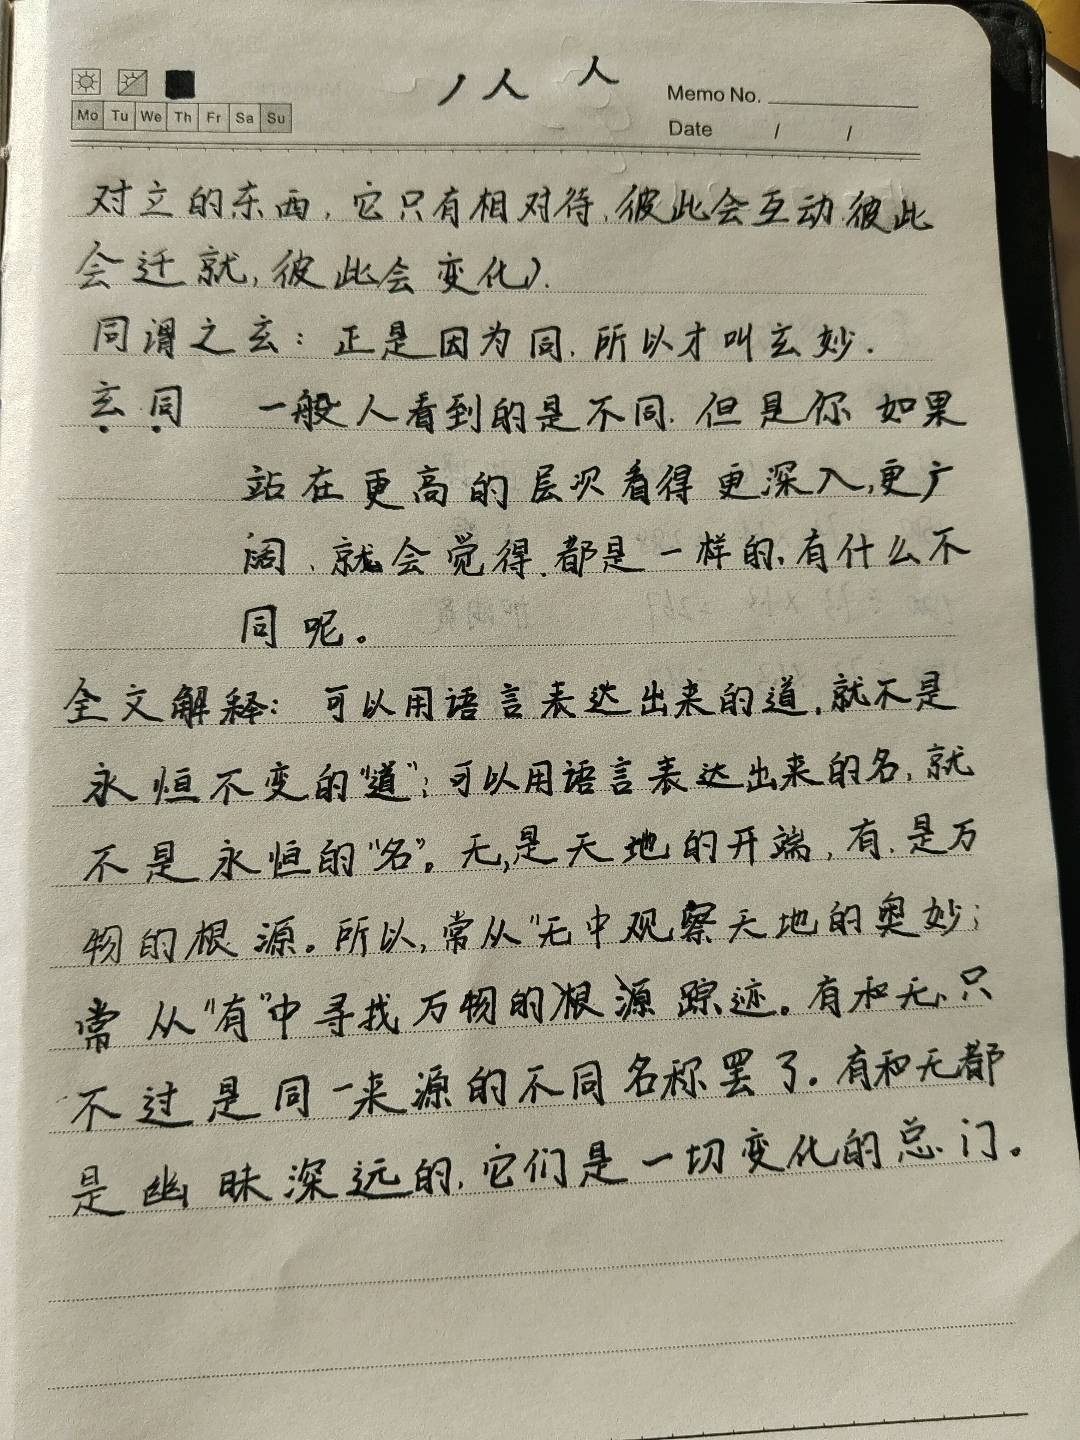 丿人 人
Memo No.
Mo Tu We Th Fr Sa Su
Date / /
对立的东西，它只有相对待，彼此会互动，彼此
会迁就，彼此会变化）.
同谓之玄：正是因为同，所以才叫玄妙.
玄同 一般人看到的是不同，但是你如果
站在更高的层次看得更深入，更广
阔、就会觉得，都是一样的，有什么不
同呢。
全文解释：可以用语言表达出来的道，就不是
永恒不变的“道”；可以用语言表达出来的名，就
不是永恒的“名”。无，是天地的开端，有，是万
物的根源。所以，常从“无中观察天地的奥妙；
常从“有”中寻找万物的根源踪迹。有和无，只
不过是同一来源的不同名称罢了。有和无都
是幽昧深远的，它们是一切变化的总门。